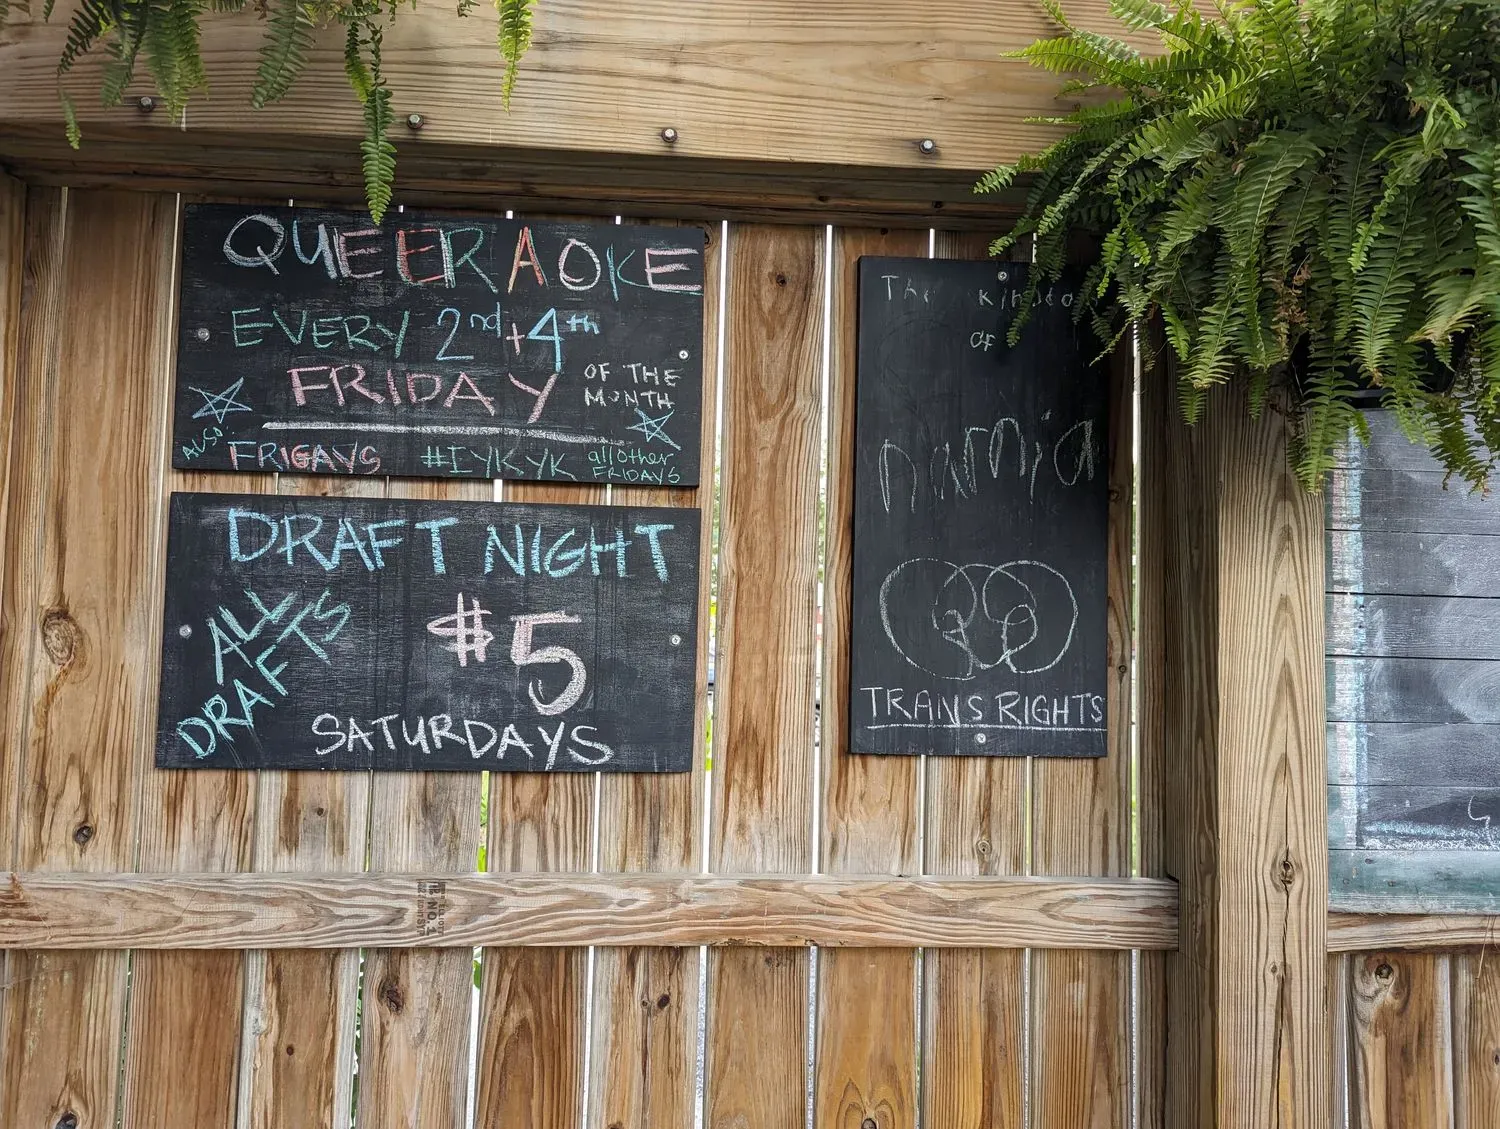 QUEERAOKE
EVERY 2nd + 4th
FRIDAY OF THE
MONTH
ALSO:
FRIGAYS #IYKYK all other
FRIDAYS
DRAFT NIGHT
ALL
DRAFTS
$5
SATURDAYS
The Kingdo
of
narnia
TRANS RIGHTS
NO. 1